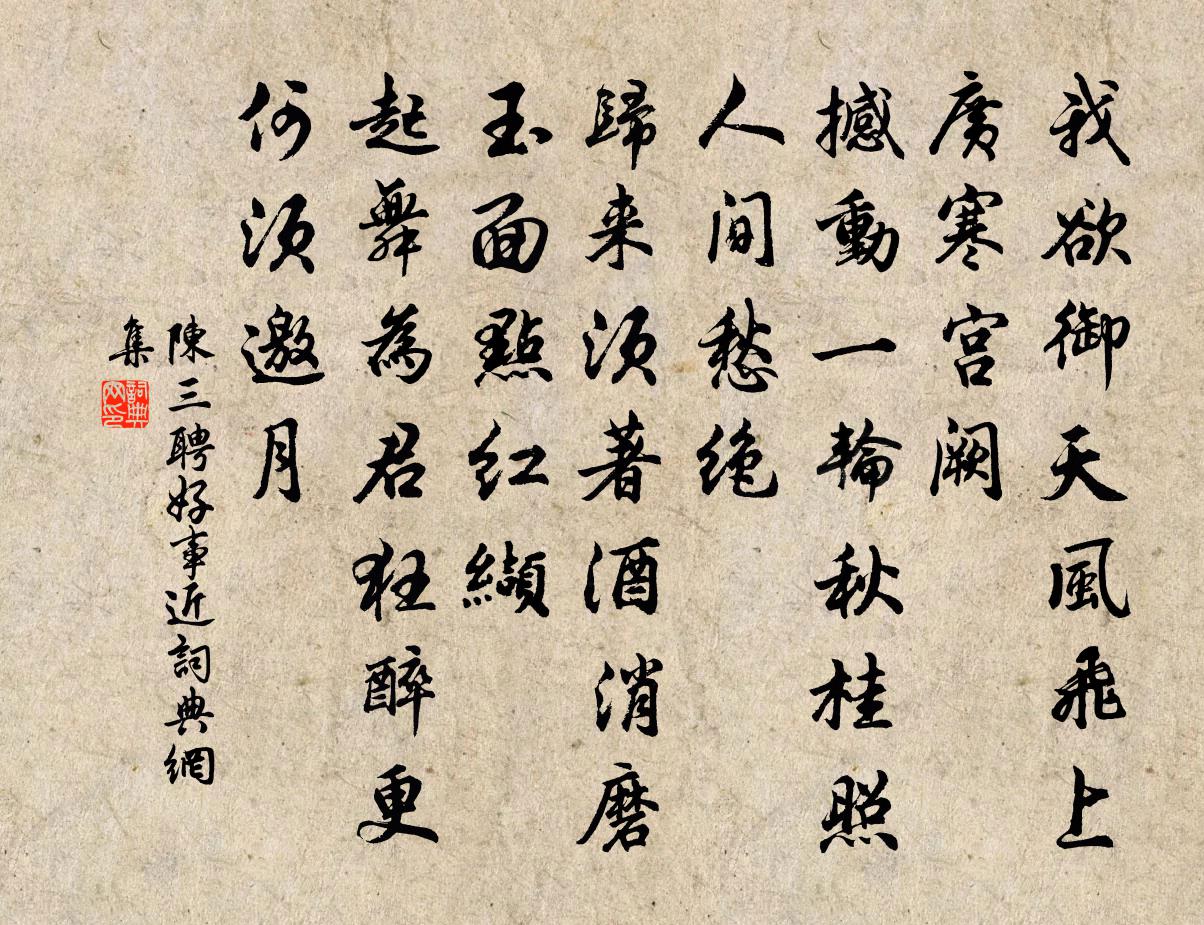 我欲御天風飛上
廣寒宮闕
撼動一輪秋桂照
人間愁絶
歸来須著酒消磨
玉面點紅纈
起舞為君狂醉更
何須邀月
陳三聘好事近詞典網
集
詞典網印